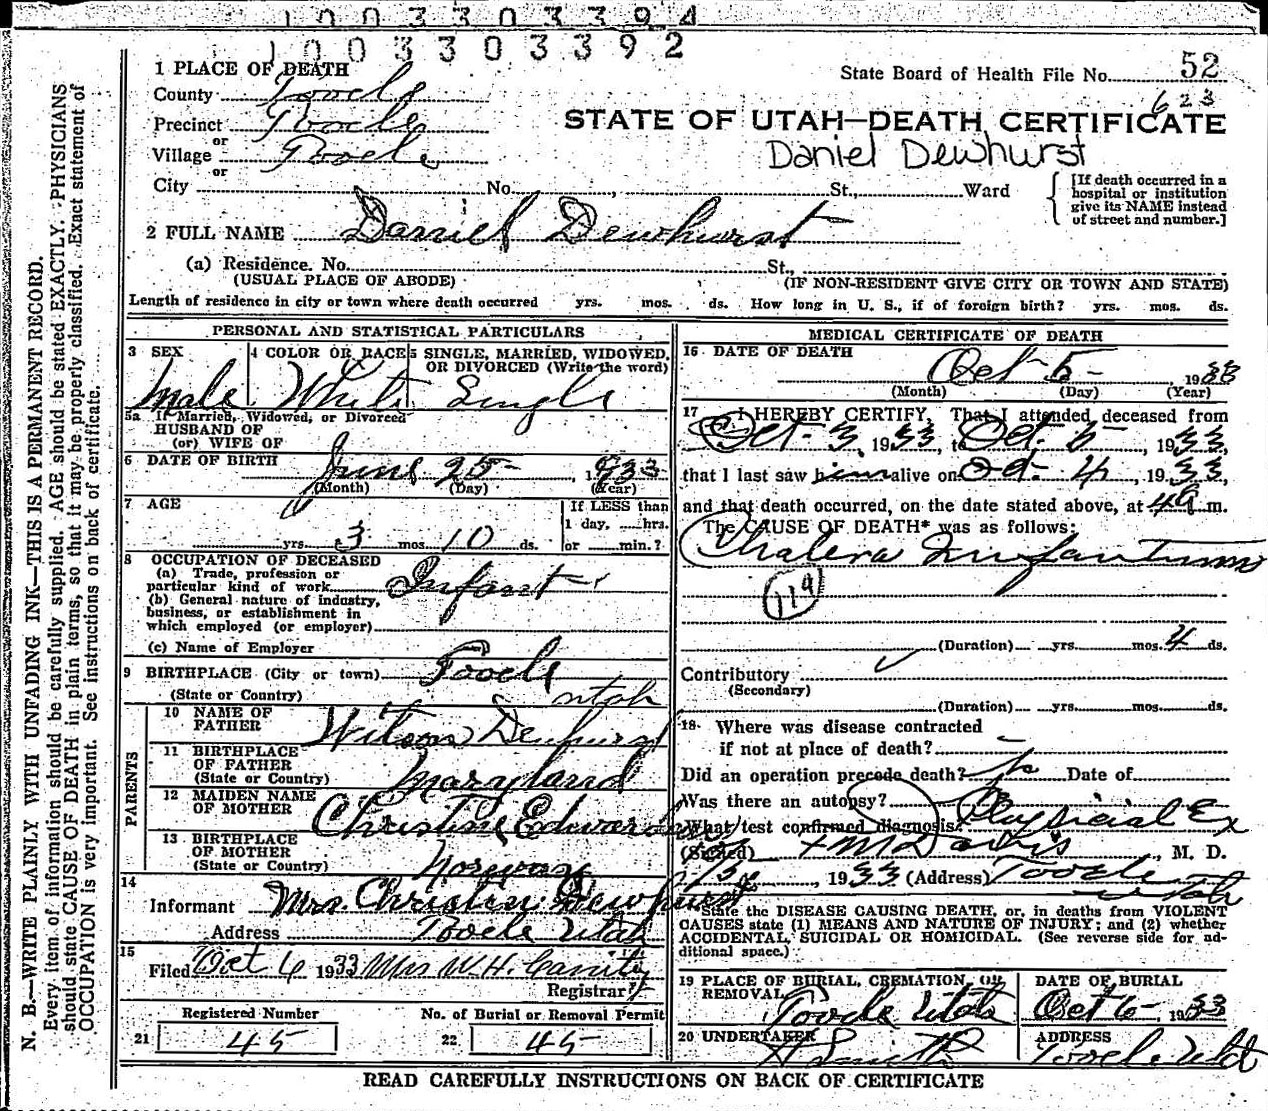 1 0 0 3 3 0 3 3 9 4
1 0 0 3 3 0 3 3 9 2
1 PLACE OF DEATH
County Tooele
Precinct Tooele
or
Village Tooele
or
City No. St., Ward
State Board of Health File No. 52
623
STATE OF UTAH—DEATH CERTIFICATE
Daniel Dewhurst
[If death occurred in a hospital or institution give its NAME instead of street and number.]
2 FULL NAME Daniel Dewhurst
(a) Residence. No. St.,
(USUAL PLACE OF ABODE) (IF NON-RESIDENT GIVE CITY OR TOWN AND STATE)
Length of residence in city or town where death occurred yrs. mos. ds. How long in U. S., if of foreign birth? yrs. mos. ds.
PERSONAL AND STATISTICAL PARTICULARS
3 SEX Male
4 COLOR OR RACE White
5 SINGLE, MARRIED, WIDOWED, OR DIVORCED (Write the word) Single
5a If Married, Widowed, or Divorced
HUSBAND OF
(or) WIFE OF
6 DATE OF BIRTH June 25 1933
(Month) (Day) (Year)
7 AGE
yrs. 3 mos. 10 ds.
If LESS than
1 day, hrs.
or min.?
8 OCCUPATION OF DECEASED
(a) Trade, profession or
particular kind of work Infant
(b) General nature of industry,
business, or establishment in
which employed (or employer)
(c) Name of Employer
9 BIRTHPLACE (City or town) Tooele
(State or Country) Utah
PARENTS
10 NAME OF FATHER Wilson Dewhurst
11 BIRTHPLACE OF FATHER
(State or Country) Maryland
12 MAIDEN NAME OF MOTHER Christine
13 BIRTHPLACE OF MOTHER
(State or Country) Norway
14
Informant Mrs. Christine Dewhurst
Address Tooele Utah
15
Filed Oct 6 1933 Mrs W. H.
Registrar
Registered Number
21 45
No. of Burial or Removal Permit
22 45
MEDICAL CERTIFICATE OF DEATH
16 DATE OF DEATH Oct 5 1933
(Month) (Day) (Year)
17 I HEREBY CERTIFY, That I attended deceased from
Oct. 3, 1933, to Oct. 5 1933,
that I last saw him alive on Oct. 4, 1933,
and that death occurred, on the date stated above, at 4 a m.
The CAUSE OF DEATH* was as follows:
Cholera Infantum
119
(Duration) yrs. mos. 4 ds.
Contributory
(Secondary)
(Duration) yrs. mos. ds.
18 Where was disease contracted
if not at place of death?
Did an operation precede death? No Date of
Was there an autopsy?
What test confirmed diagnosis? Physicial Ex
(Signed) Davis, M. D.
, 1933 (Address) Tooele
Utah
*State the DISEASE CAUSING DEATH, or, in deaths from VIOLENT
CAUSES state (1) MEANS AND NATURE OF INJURY; and (2) whether
ACCIDENTAL, SUICIDAL OR HOMICIDAL. (See reverse side for ad-
ditional space.)
19 PLACE OF BURIAL, CREMATION, OR REMOVAL Tooele Utah
DATE OF BURIAL
Oct 6 1933
20 UNDERTAKER Smith
ADDRESS
Tooele Utah
READ CAREFULLY INSTRUCTIONS ON BACK OF CERTIFICATE
N. B.—WRITE PLAINLY WITH UNFADING INK—THIS IS A PERMANENT RECORD.
Every item of information should be carefully supplied. AGE should be stated EXACTLY. PHYSICIANS
should state CAUSE OF DEATH in plain terms, so that it may be properly classified. Exact statement of
OCCUPATION is very important. See instructions on back of certificate.